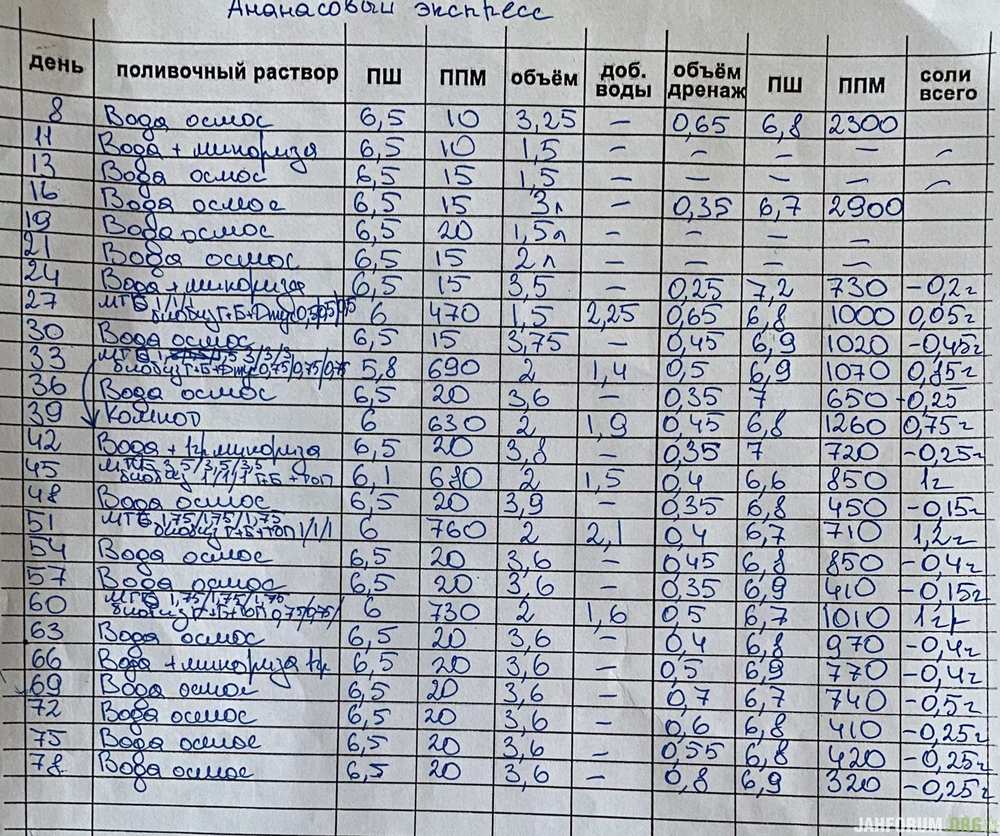 Ананасовый экспресс
день поливочный раствор ПШ ППМ объём доб. воды объём дренаж ПШ ППМ соли всего
8 Вода осмос 6,5 10 3,25 – 0,65 6,8 2300
11 Вода + микориза 6,5 10 1,5 – – – – –
13 Вода осмос 6,5 15 1,5 – – – – –
16 Вода осмос 6,5 15 3л – 0,35 6,7 2900
19 Вода осмос 6,5 20 1,5л – – – –
21 Вода осмос 6,5 15 2л – – – –
24 Вода + микориза 6,5 15 3,5 – 0,25 7,2 730 -0,2г
27 МГБ 1/1/1 6 470 1,5 2,25 0,65 6,8 1000 0,05г
30 Вода осмос 6,5 15 3,75 – 0,45 6,9 1020 -0,45г
33 3/3/3 0,75/0,75/0,75 5,8 690 2 1,4 0,5 6,9 1070 0,85г
36 Вода осмос 6,5 20 3,6 – 0,35 7 650 -0,25
39 Компот 6 630 2 1,9 0,45 6,8 1260 0,75г
42 Вода + 1гр. микориза 6,5 20 3,8 – 0,35 7 720 -0,25г
45 3,5/3,5/3,5 1/1/1 6,1 680 2 1,5 0,4 6,6 850 1г
48 Вода осмос 6,5 20 3,9 – 0,35 6,8 450 -0,15г
51 МГБ 1,75/1,75/1,75 1/1/1 6 760 2 2,1 0,4 6,7 710 1,2г
54 Вода осмос 6,5 20 3,6 – 0,45 6,8 850 -0,4г
57 Вода осмос 6,5 20 3,6 – 0,35 6,9 410 -0,15г
60 МГБ 1,75/1,75/1,75 0,75/0,75/ 6 730 2 1,6 0,5 6,7 1010 1гр
63 Вода осмос 6,5 20 3,6 – 0,4 6,8 970 -0,4г
66 Вода + микориза 1гр 6,5 20 3,6 – 0,5 6,9 770 -0,4г
69 Вода осмос 6,5 20 3,6 – 0,7 6,7 740 -0,5г
72 Вода осмос 6,5 20 3,6 – 0,6 6,8 410 -0,25г
75 Вода осмос 6,5 20 3,6 – 0,55 6,8 420 -0,25г
78 Вода осмос 6,5 20 3,6 – 0,8 6,9 320 -0,25г
JAHFORUM.ORG